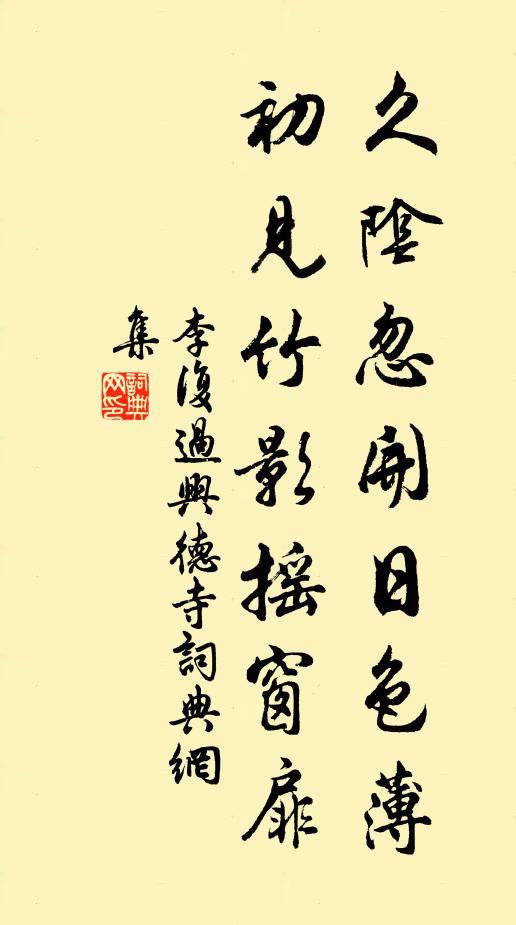 久陰忽開日色薄
初見竹影摇窗扉
李復過興德寺詞典網
集
詞典
网印